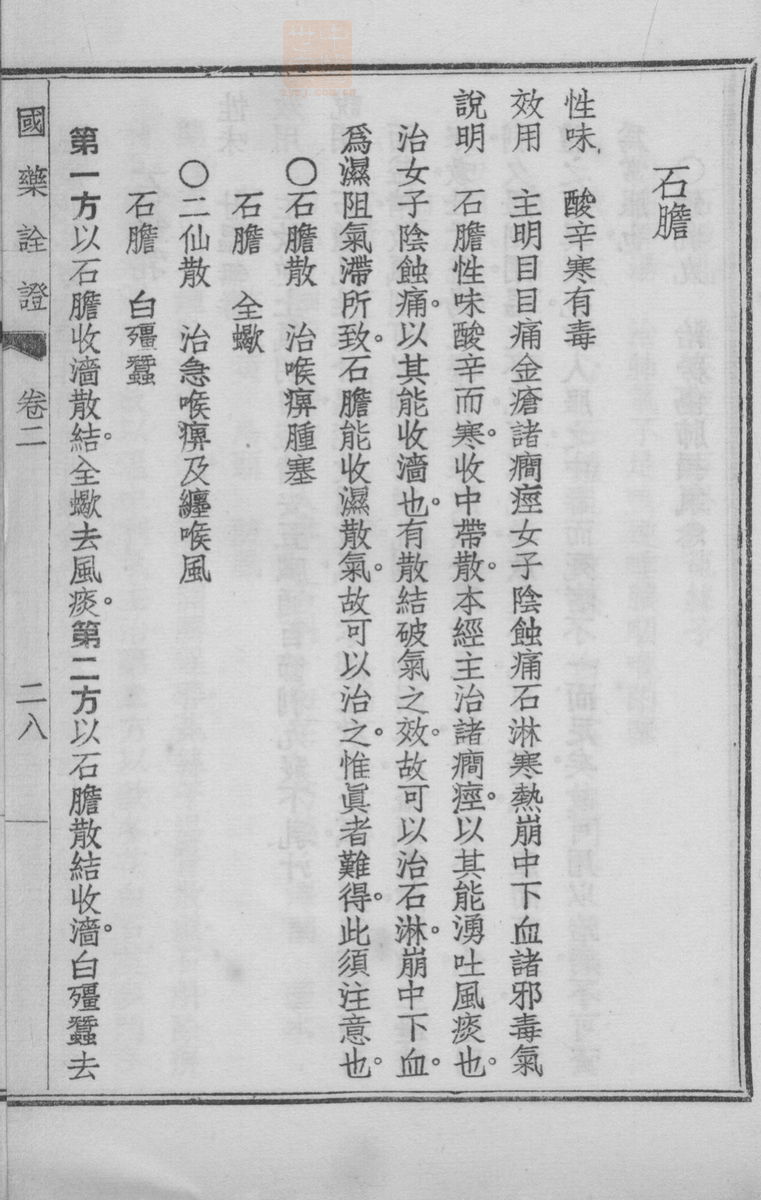 石膽
性味　酸辛寒有毒
效用　主明目目痛金瘡諸癎痙女子陰蝕痛石淋寒熱崩中下血諸邪毒氣
說明　石膽性味酸辛而寒。收中帶散。本經主治諸癎痙。以其能湧吐風痰也。
治女子陰蝕痛。以其能收濇也。有散結破氣之效。故可以治石淋。崩中下血。
爲濕阻氣滯所致。石膽能收濕散氣。故可以治之。惟眞者難得。此須注意也。
〇石膽散　治喉痹腫塞
石膽　全蠍
〇二仙散　治急喉痹及纏喉風
石膽　白殭蠶
第一方以石膽收濇散結。全蠍去風痰。第二方以石膽散結收濇。白殭蠶去
國藥詮證　卷二　二八